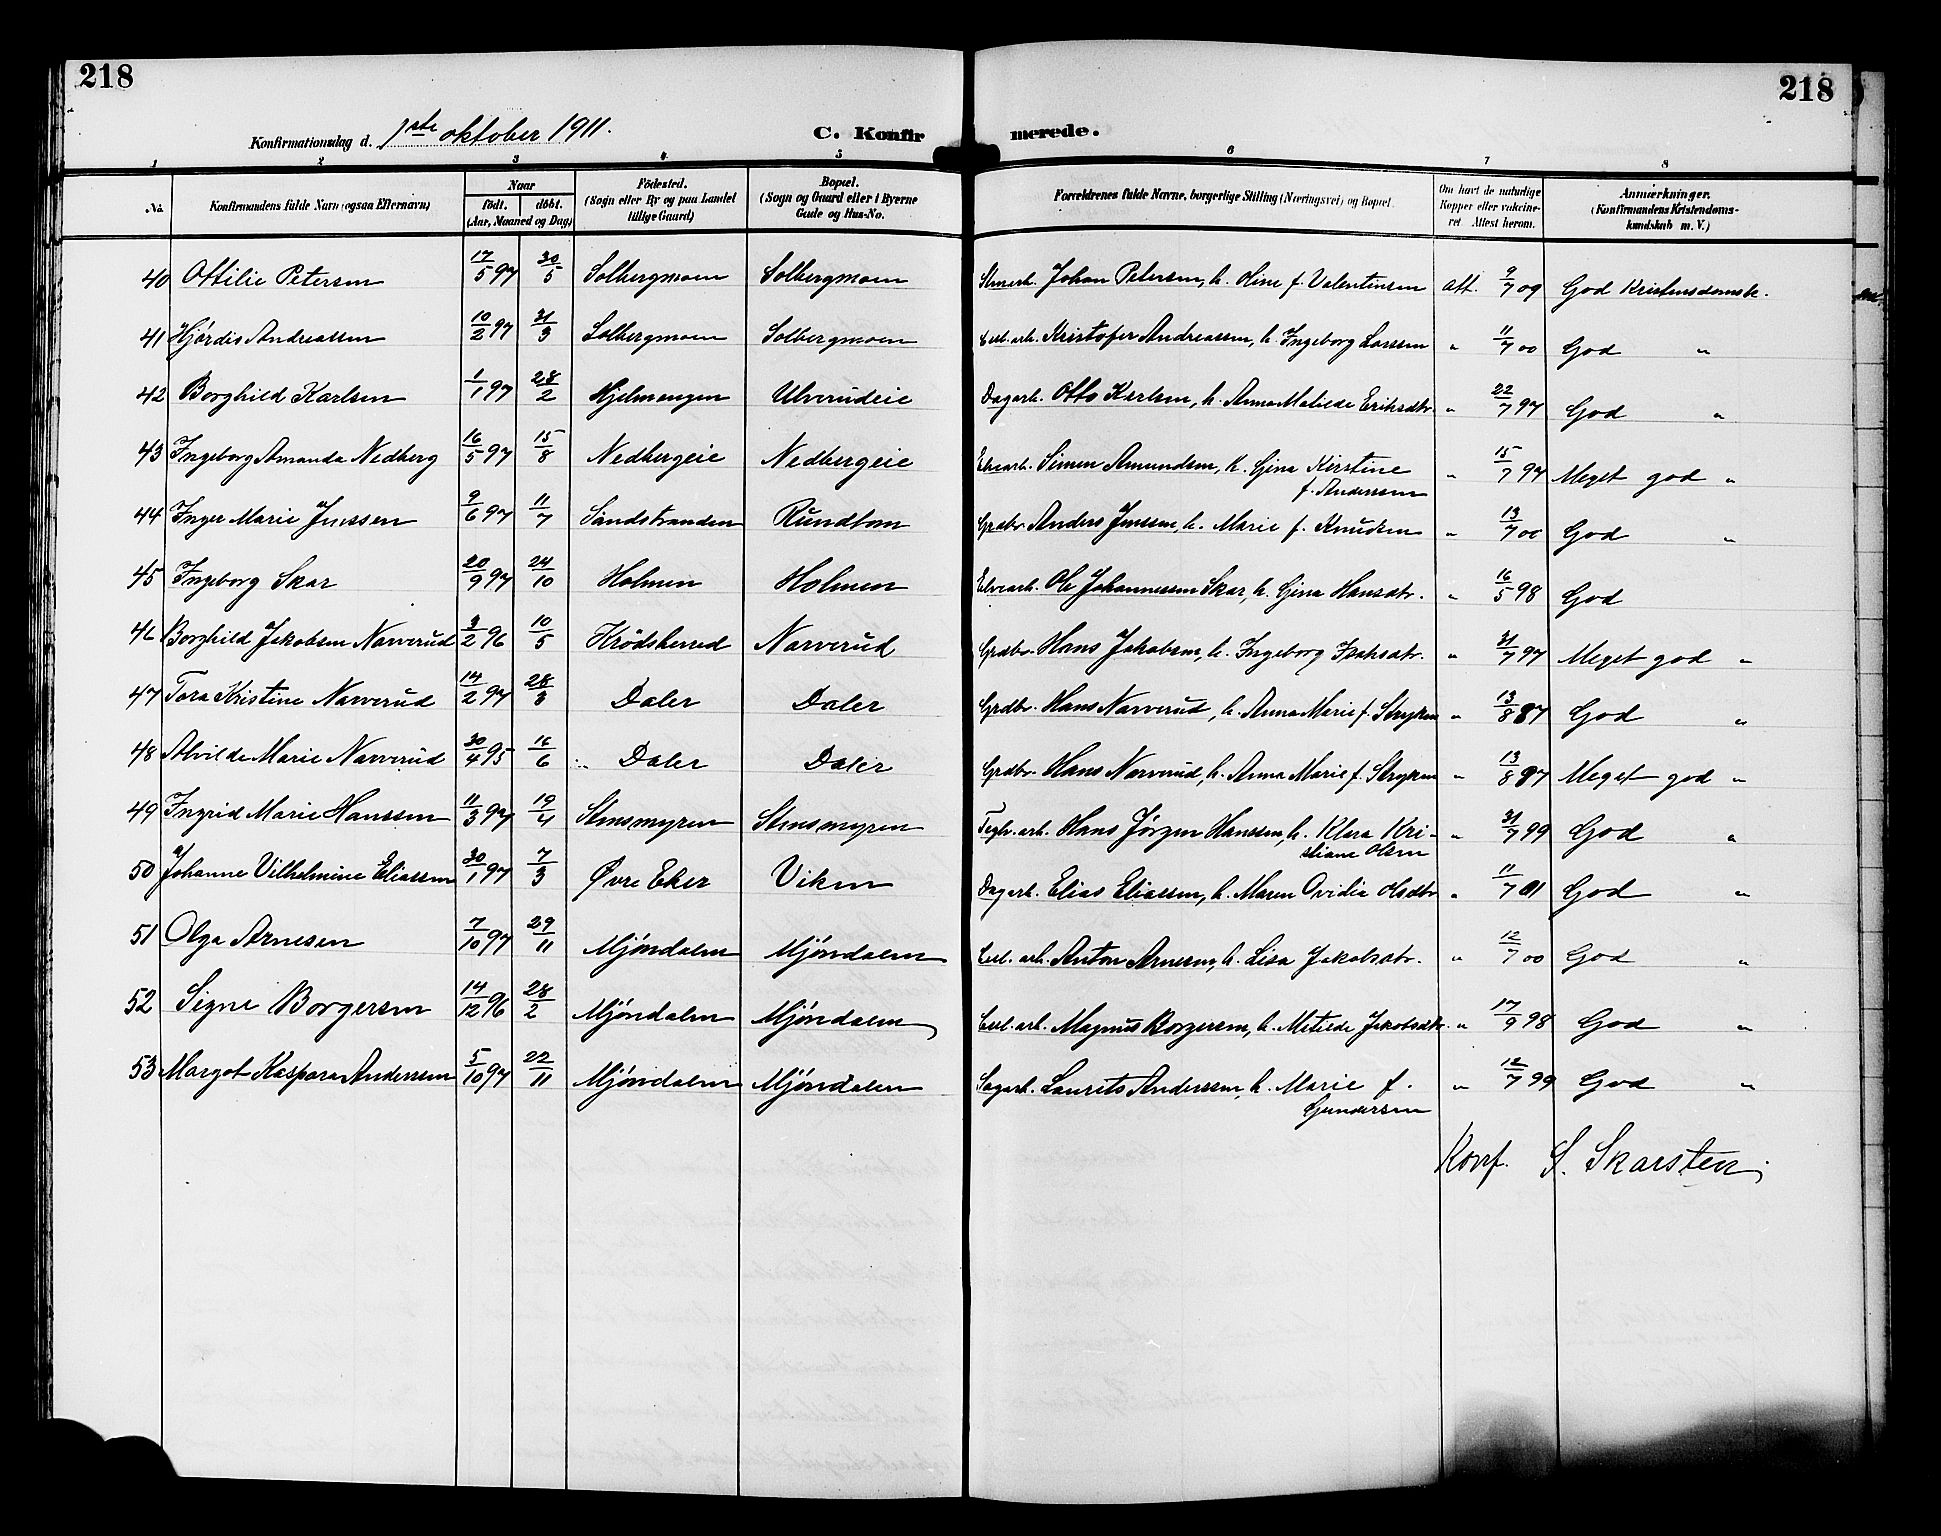 218
218
Konfirmationsdag d. 1ste oktober 1911.
C. Konfirmerede.
1 2 3 4 5 6 7 8
No.
Konfirmandens fulde Navn (ogsaa Efternavn)
Naar
født. døbt.
(Aar, Maaned og Dag)
Fødested.
(Sogn eller By og paa Landet
tillige Gaard)
Bopæl.
(Sogn og Gaard eller i Byerne
Gade og Hus-No.
Forældrenes fulde Navne, borgerlige Stilling (Næringsvei) og Bopæl.
Om havt de naturlige
Kopper eller vakcine-
ret. Attest herom.
Anmærkninger.
(Konfirmandens Kristendoms-
kundskab m. V.)
40 Ottilie Petersen 17/5 97 30/5 Solbergmoen Solbergmoen Johan Petersen, h. Oline f. Valentinsen att. 9/7 09 God Kristensdomsk.
41 Hjørdis Andreassen 10/2 97 31/3 Solbergmoen Solbergmoen Cel. arb. Kristofer Andreassen, h. Ingeborg Larssen " 11/7 00 God "
42 Borghild Karlsen 1/1 97 28/2 Hjelmengen Ulverudeie Dagarb. Otto Karlsen, h. Anna Matilde Eriksdtr. " 22/7 97 God "
43 Ingeborg Amanda Nedberg 16/5 97 15/8 Nedbergeie Nedbergeie Elvearb. Simen Amundsen, h. Gina Kirstine
f. Anderssen " 15/7 97 Meget god "
44 Inger Marie Jenssen 9/6 97 11/7 Sandstranden Rundtom Grdbr. Anders Jenssen, h. Marie f. Knudsen " 13/7 00 God "
45 Ingeborg Skar 20/9 97 24/10 Holmen Holmen Elvearb. Ole Johannessen Skar, h. Gina Hansdtr. " 16/5 98 God
46 Borghild Jakobsen Narverud 3/2 96 10/5 Krødsherred Narverud Grdbr. Hans Jakobsen, h. Ingeborg Isaksdtr. " 31/7 97 Meget god "
47 Tora Kristine Narverud 14/2 97 28/3 Daler Daler Grdbr. Hans Narverud, h. Anna Marie f. Stryken " 13/8 87 God "
48 Alvilde Marie Narverud 30/4 95 16/6 Daler Daler Grdbr. Hans Narverud, h. Anna Marie f. Stryken " 13/8 87 Meget god "
49 Ingrid Marie Hanssen 11/3 97 19/4 Stensmyren Stensmyren Teglv. arb. Hans Jørgen Hanssen, h. Klara Kri-
stiane Olsen " 31/7 99 God "
50 Johanne Vilhelmine Eliassen 30/1 97 7/3 Øvre Eker Viken Dagarb. Elias Eliassen, h. Maren Ovidia Olsdtr " 11/7 01 God "
51 Olga Arnesen 7/10 97 29/11 Mjøndalen Mjøndalen Cel. arb. Anton Arnesen, h. Lisa Jakobsdtr. " 12/7 00 God "
52 Signe Borgersen 14/12 96 28/2 Mjøndalen Mjøndalen Cel. arb. Magnus Borgersen, h. Matilde Jakobsdtr. " 17/9 98 God "
53 Margot Kaspara Anderssen 5/10 97 22/11 Mjøndalen Mjøndalen Sagarb. Laurits Anderssen, h. Marie f.
Gundersen " 12/7 99 God "
Konf. S. Skarsten